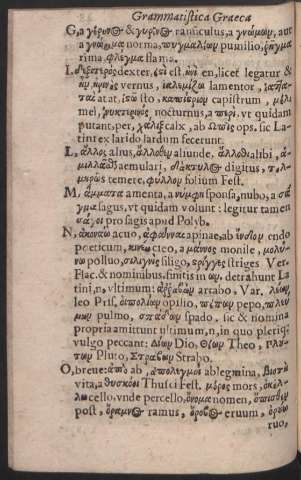 Grammatistica Graeca
G, a γύρινος & γυρῖνος ranunculus, a γνώμων, aut
a γνώριμα norma, πυγμαλίων pumilio, φλέγμα
rima φλέγμα flama.
L, δεξιτερός dexter, ἔτι est, ἐνὶ en, licet legatur &
vernus, ἰαλεμίζω lamentor,
tat at at, ἱστῶ sto, κατίστριον capistrum, μέλι
mel, νυκτερινὸς nocturnus, a πέρι. vt quidam
putant, per, χάλιξ calx, ab ops. sic La-
tini ex larido lardum fecerunt.
L, ἄλλος alius, ἄλλοθεν aliunde, ἄλλοθι alibi,
aemulari, δάκτυλος digitus,
temere, φύλλον folium Fest.
M, ἄμματα amenta, a νύμφη sponsa, nubo, a
sagus, vt quidam volunt: legitur tamen
pro sagis apud Polyb.
N, ἀκονάω acuo, apinae, ab ἔνδον endo
poeticum, κινέω cieo, a μάννος monile, μολύ-
νω polluo, σιλιγνὶς siligo, striges Ver.
Flac. & nomina bus. finitis in ων. detrahunt La
tini, ν, vltimum: ἀρραβὼν arrabo. Var. λέων,
leo Prisc. opilio, πέπων pepo, πλεύ
μων pulmo, σπάδων spado. sic & nomina
propria amittunt vltimum, n, in quo pleriq;
vulgo peccant: Δίων Dio, Θέων Theo, Πλού-
των Pluto, Στράβων Strabo.
O, breue: ἀπὸ ab, ablegmina, βιοτὴ
vita, a θυσκόοι Thusci Fest. μόρος mors, ὀκέλ-
λω cello. vnde percello, ὄνομα nomen, ὄπισθεν
post, ὄραμνος ramus, ὄροβος eruum, ὀρύω
ruo,